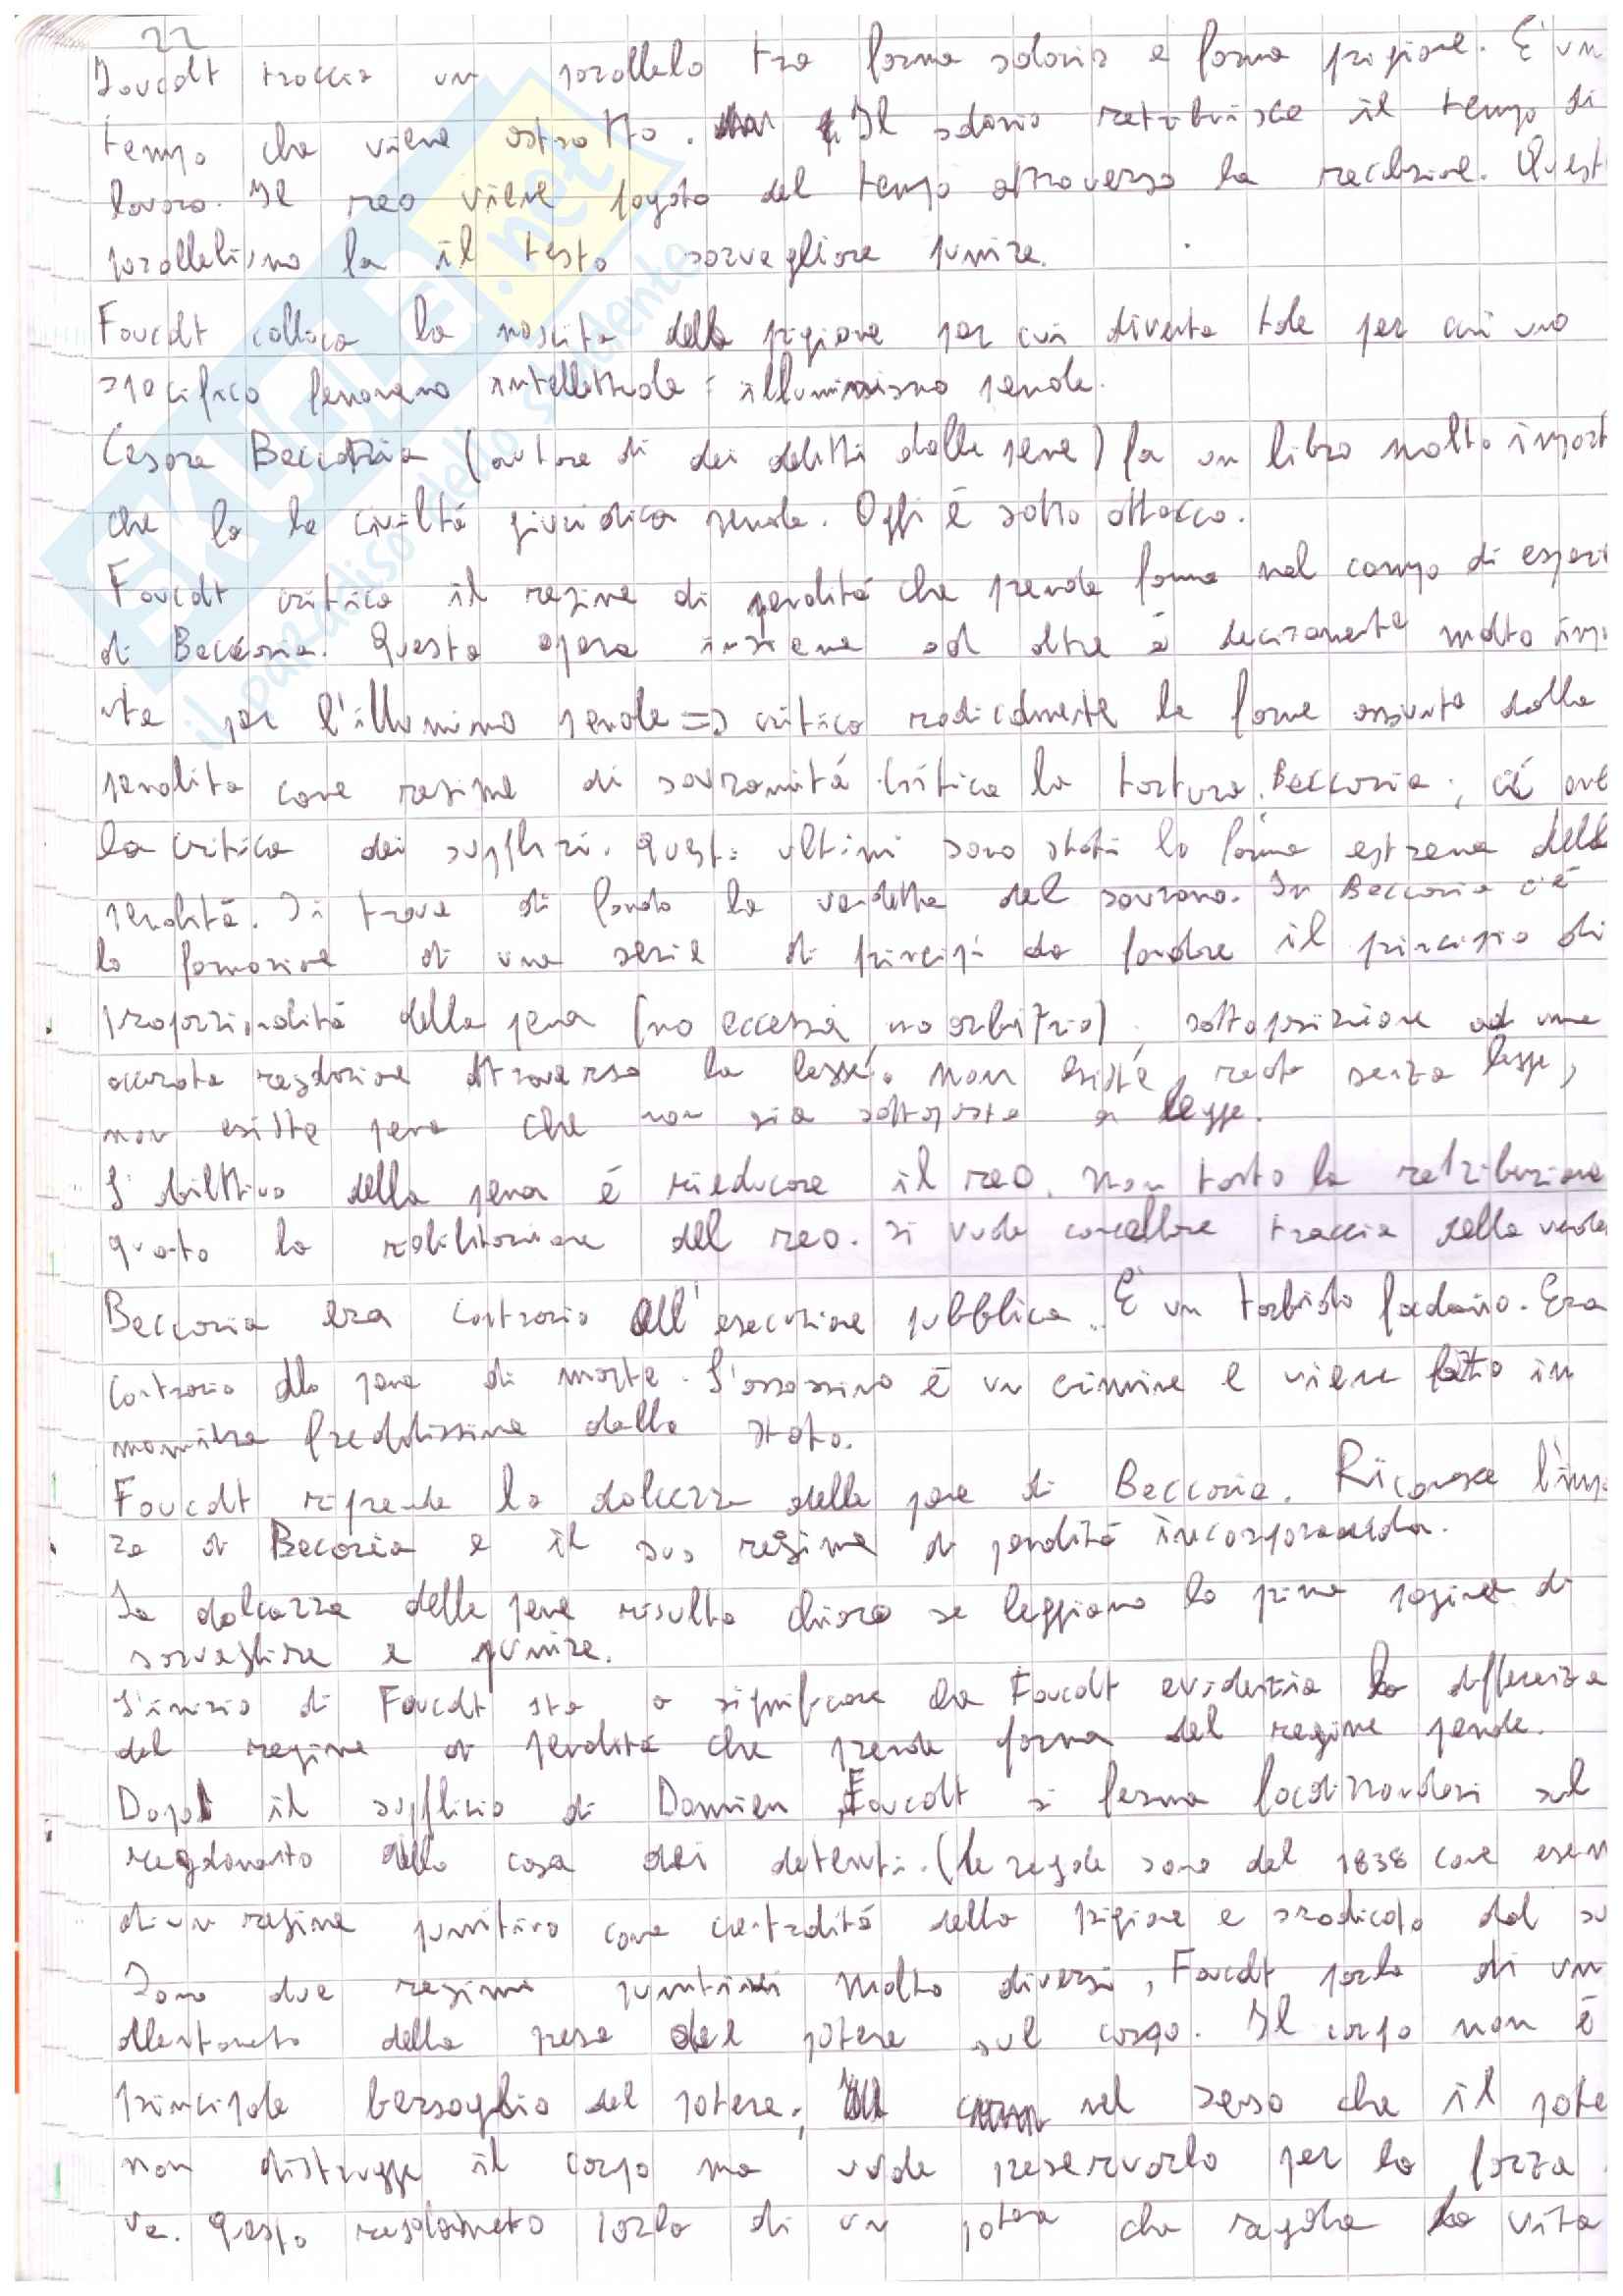 22
Foucalt traccia un parallelo tra forma salario e forma prigione. È un
tempo che viene astratto. Il salario retribuisce il tempo di
lavoro. Il reo viene pagato del tempo attraverso la reclusione. Quest
parallelismo fa il testo sorvegliare punire.
Foucalt colloca la nascita della prigione per cui diventa tale per cui uno
specifico fenomeno intellettuale: illuminismo penale.
Cesare Beccaria (autore di dei delitti delle pene) fa un libro molto import
che fa la civiltà giuridica penale. Oggi è sotto attacco.
Foucalt critica il regime di penalità che prende forma nel campo di esperi
di Beccaria. Questa opera insieme ad altre è decisamente molto imp
nte per l'illumimo penale => critica radicalmente le forme assunte dalla
penalita come regime di sovranità. Critica la tortura. Beccaria; c'è anc
la critica dei supplizi. Questi ultimi sono stati la forma estrema della
penalità. Si trova di fondo la vendetta del sovrano. In Beccaria c'è
la formazione di una serie di principi da fondare il principio di
proporzionalità della pena (no eccessi, no arbitrio). sottoposizione ad una
accurata regolazione attraverso la legge. non esiste reato senza legge,
non esiste pena che non sia sottoposta a legge.
L'obiettivo della pena è rieducare il reo. non tanto la retribuzione
quanto la riabilitazione del reo. si vuole cancellare traccia della vende
Beccaria era contrario all'esecuzione pubblica. È un torbido focolaio. Era
contrario alla pena di morte. L'assassino è un crimine e viene fatto in
maniera freddissima dallo stato.
Foucalt riprende la dolcezza delle pene di Beccaria. Riconosce l'impo
za di Beccaria e il suo regime di penalità incorporandola.
La dolcezza delle pene risulta chiara se leggiamo la prima pagina di
sorvegliare e punire.
L'inizio di Foucalt sta a significare che Foucalt evidenzia la differenza
del regime di penalità che prende forma del regime penale.
Dopo il supplizio di Damien, Foucalt si ferma focalizzandosi sul
regolamento della casa dei detenuti. (le regole sono del 1838 come esem
di un regime punitivo come centralità della prigione e sradicato dal su
Sono due regimi punitivi molto diversi, Foucalt parla di un
allentamento della presa del potere sul corpo. Il corpo non è
principale bersaglio del potere, nel senso che il pote
non distrugge il corpo ma vuole preservarlo per la forza
va. Questo regolamento parla di un potere che regola la vita